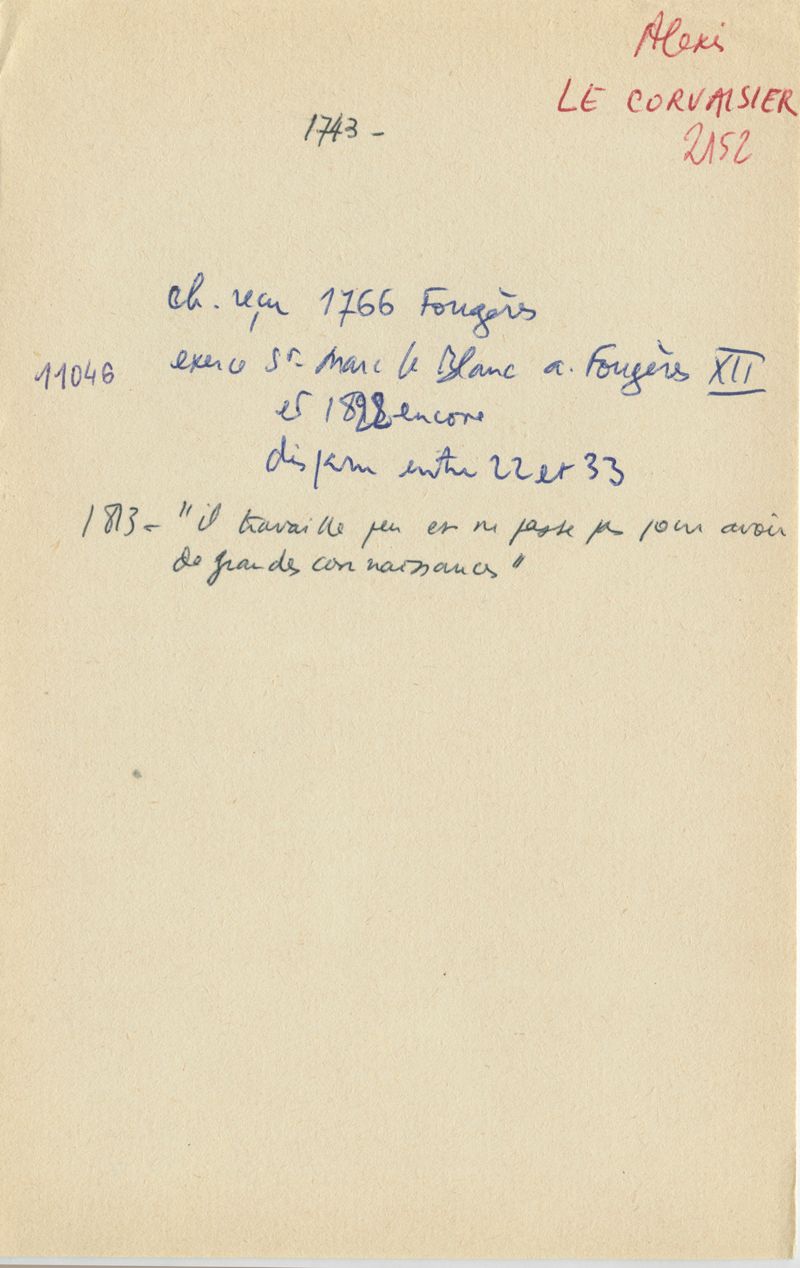 Alexis
LE CORVAISIER
2152
1743 -
ch. reçu 1766 Fougères
11046 exerce St- Marc le Blanc a. Fougères XII
et 1822 encore
disparu entre 22 et 33
1813 - "il travaille peu et ne passe pas pour avoir
de grandes connaissances"